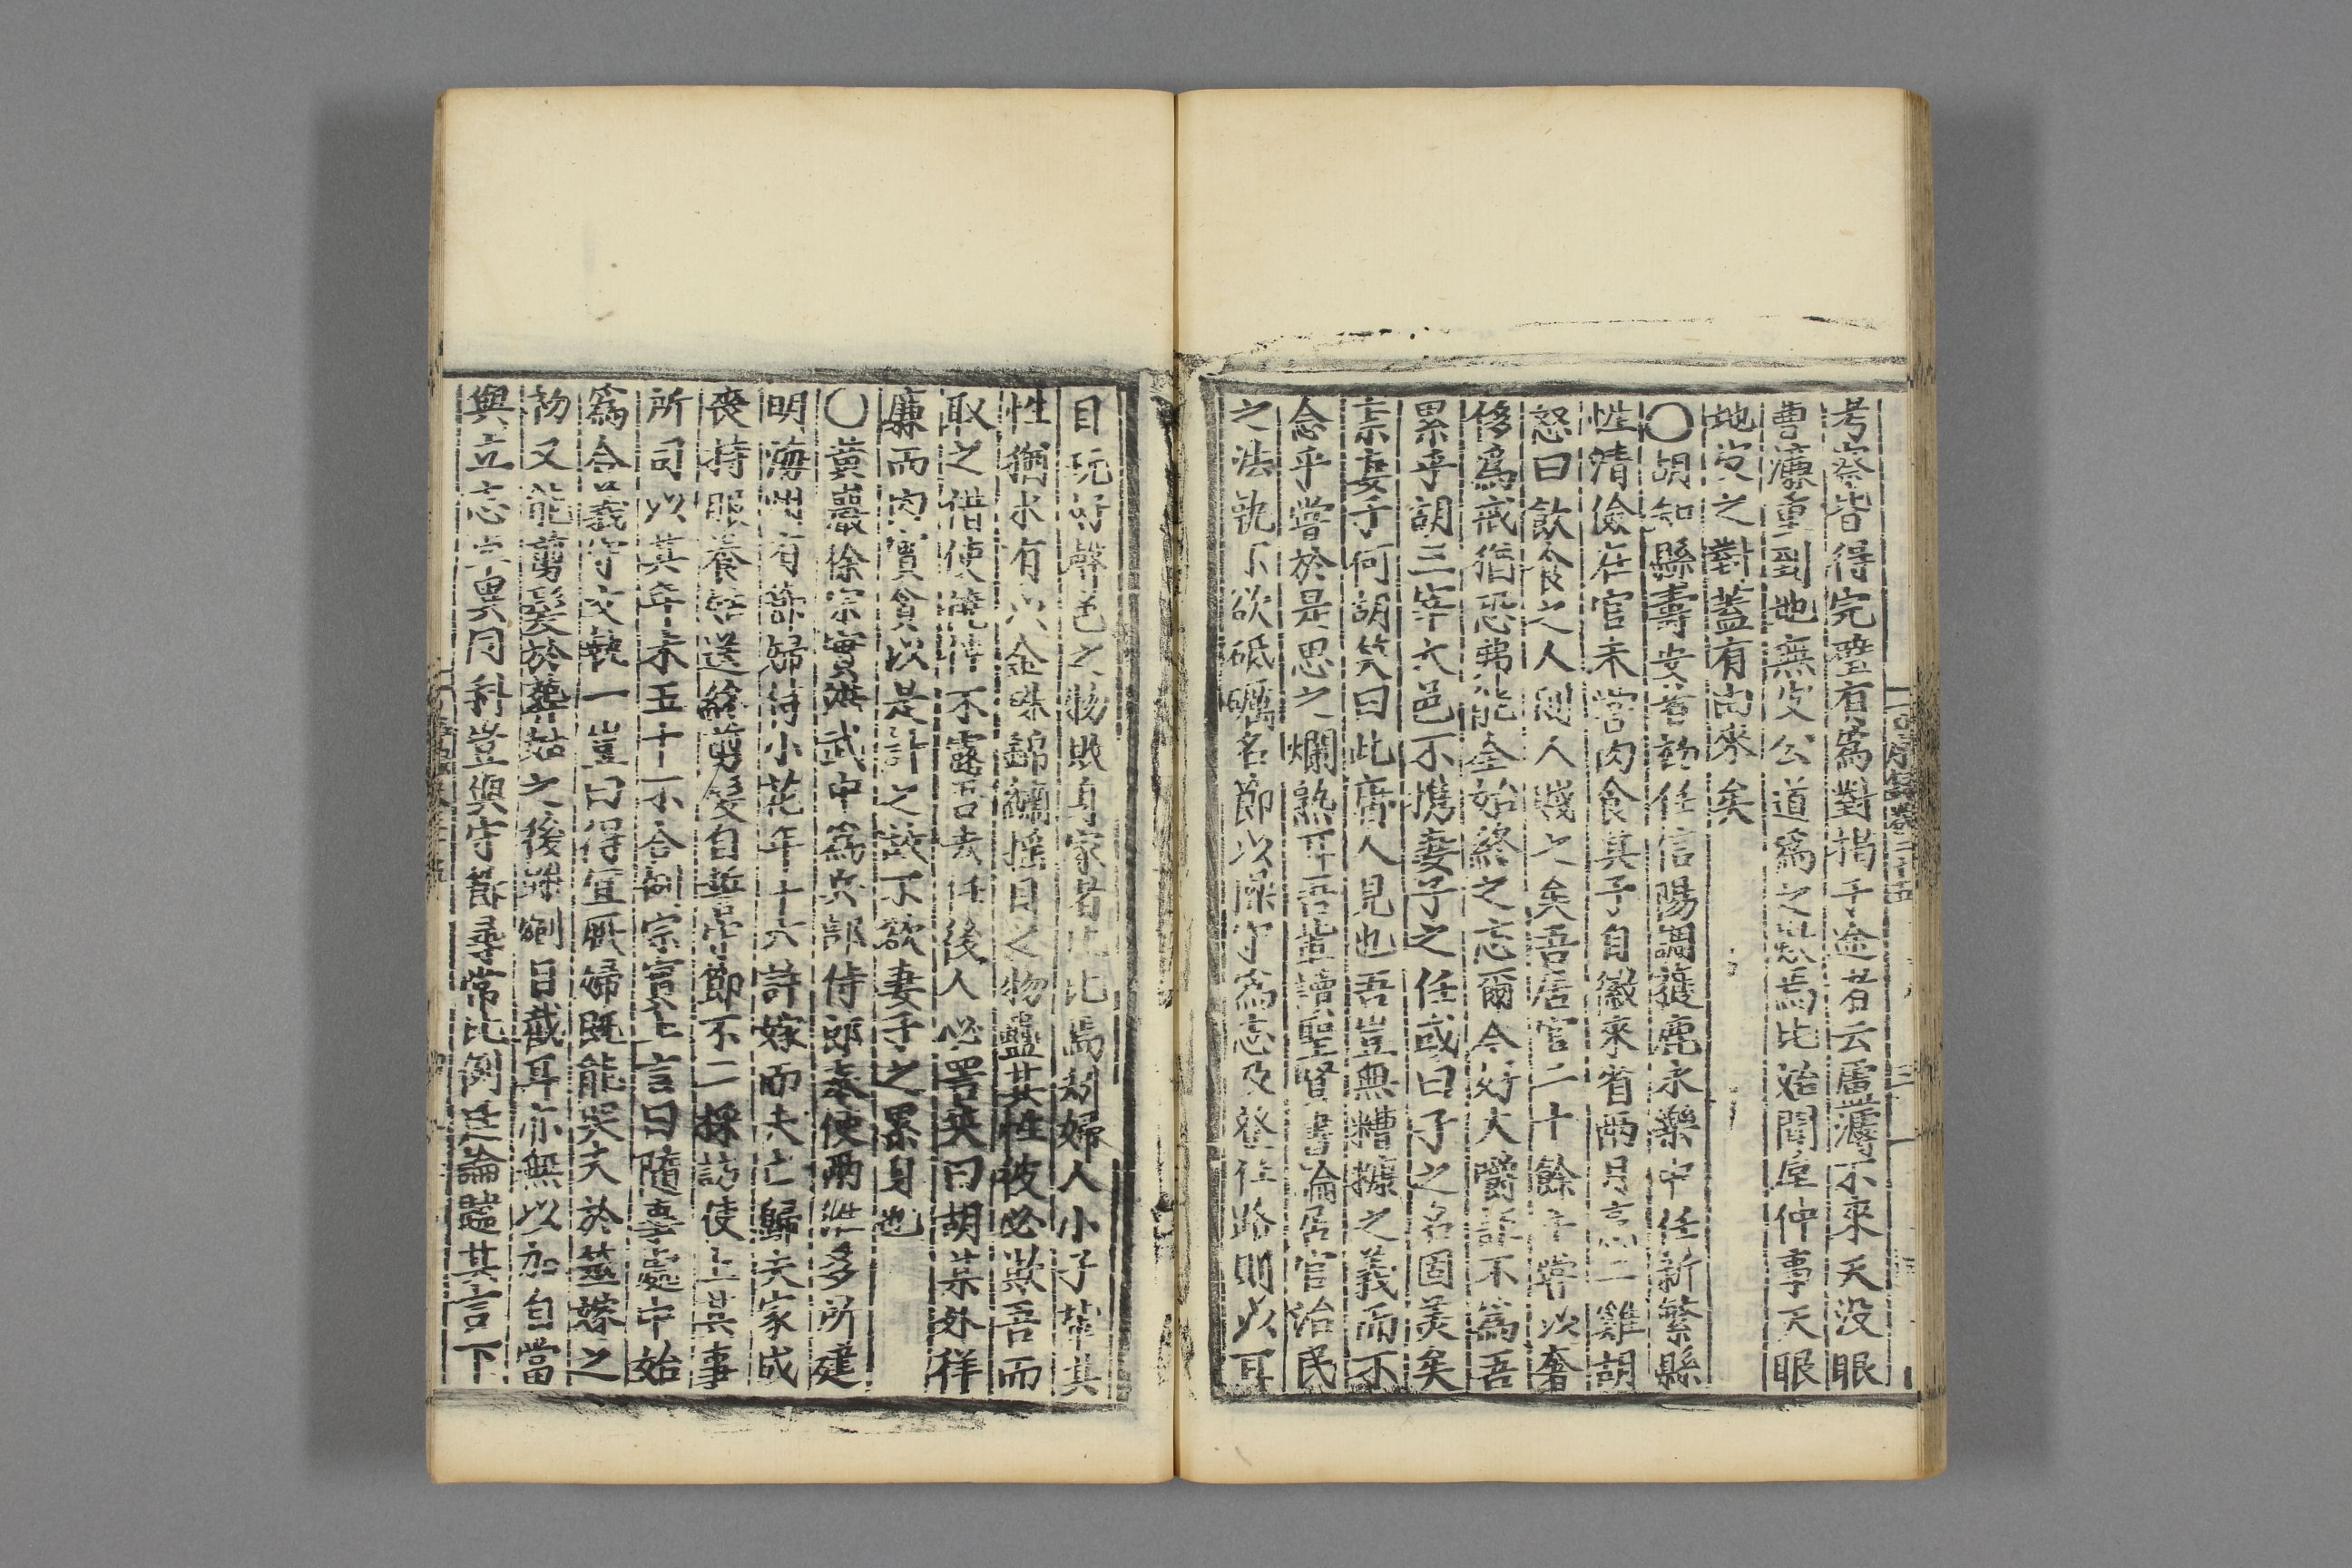 考察皆得完璧有爲對揭于途者云盧濬不來天沒眼
曹濂重到地無皮公道爲之
焉比始聞屋仲事天眼
地皮之對蓋有由來矣
○胡知縣壽安
任信陽調獲鹿永樂中任新繁縣
性清儉在官未嘗肉食其子自徽來省兩月烹二雞胡
怒曰飲食之人則人賤之矣吾居官二十餘年嘗以奢
侈爲戒猶恐弗能全始終之志爾今好大嚼詎不爲吾
累乎胡三宰大邑不攜妻子之任或曰子之名固美矣
柰妻子何胡笑曰此庸人見也吾豈無糟糠之義而不
念乎嘗於是思之爛熟耳吾輩讀聖賢書論居官治民
之法孰不欲砥礪名節以操守爲志及登仕路則以耳
目玩好聲色之物敗身家者比比焉刻婦人小子輩其
性猶水有以金珠錦繡搖目之物蠱其性彼必欺吾而
取之借使僥倖不露吾去任後人必詈笑曰胡某外徉
廉而內實貪以是計之故不欲妻子之累身也
○黃巖徐宗實洪武中爲兵部侍郎奉使兩淮多所建
明海州有節婦侍小花年十六許嫁而夫亡歸夫家成
喪持服養姑送終剪髮自誓崇節不二採訪使上其事
所司以其年未五十不合制宗實上言曰隨事處中始
爲合義守文執一豈曰得宜厥婦既能哭夫於葢嫁之
初又能剪髮於葬姑之後雖劓目截耳亦無以加自當
與立志卓異同科豈與守節尋常比例廷論韙其言下